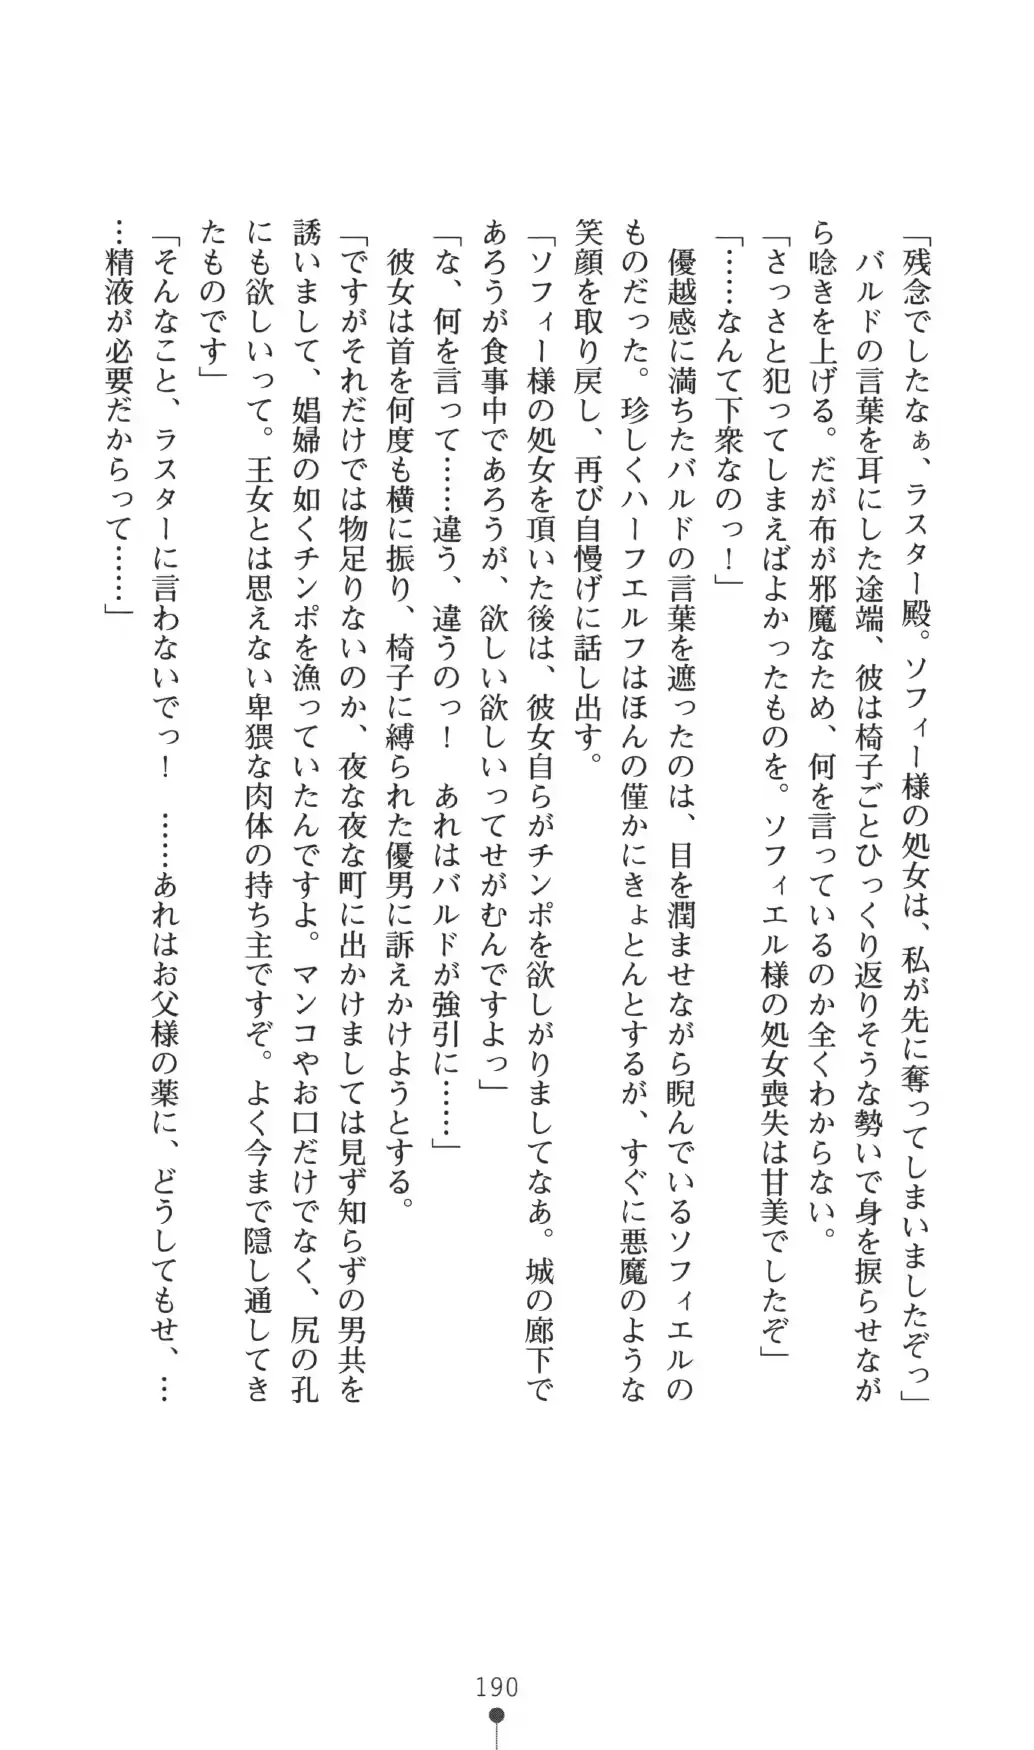 「残念でしたなぁ、ラスター殿。ソフィー様の処女は、私が先に奪ってしまいましたぞっ」
　バルドの言葉を耳にした途端、彼は椅子ごとひっくり返りそうな勢いで身を捩らせなが
ら唸きを上げる。だが布が邪魔なため、何を言っているのか全くわからない。
「さっさと犯ってしまえばよかったものを。ソフィエル様の処女喪失は甘美でしたぞ」
「……なんて下衆なのっ！」
　優越感に満ちたバルドの言葉を遮ったのは、目を潤ませながら睨んでいるソフィエルの
ものだった。珍しくハーフエルフはほんの僅かにきょとんとするが、すぐに悪魔のような
笑顔を取り戻し、再び自慢げに話し出す。
「ソフィー様の処女を頂いた後は、彼女自らがチンポを欲しがりましてなあ。城の廊下で
あろうが食事中であろうが、欲しい欲しいってせがむんですよっ」
「な、何を言って……違う、違うのっ！　あれはバルドが強引に……」
　彼女は首を何度も横に振り、椅子に縛られた優男に訴えかけようとする。
「ですがそれだけでは物足りないのか、夜な夜な町に出かけましては見ず知らずの男共を
誘いまして、娼婦の如くチンポを漁っていたんですよ。マンコやお口だけでなく、尻の孔
にも欲しいって。王女とは思えない卑猥な肉体の持ち主ですぞ。よく今まで隠し通してき
たものです」
「そんなこと、ラスターに言わないでっ！　……あれはお父様の薬に、どうしてもせ、…
…精液が必要だからって……」
190